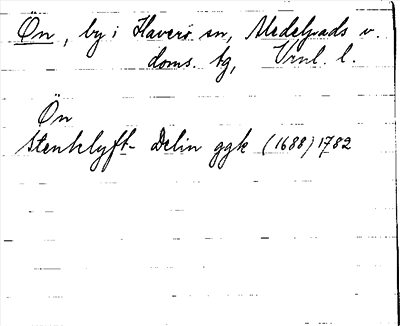 Ön, by i Haverö sn, Medelpads v.
doms. tg, Vrnl. l.
Ön
Stenklyft- Delin ggk (1688) 1782